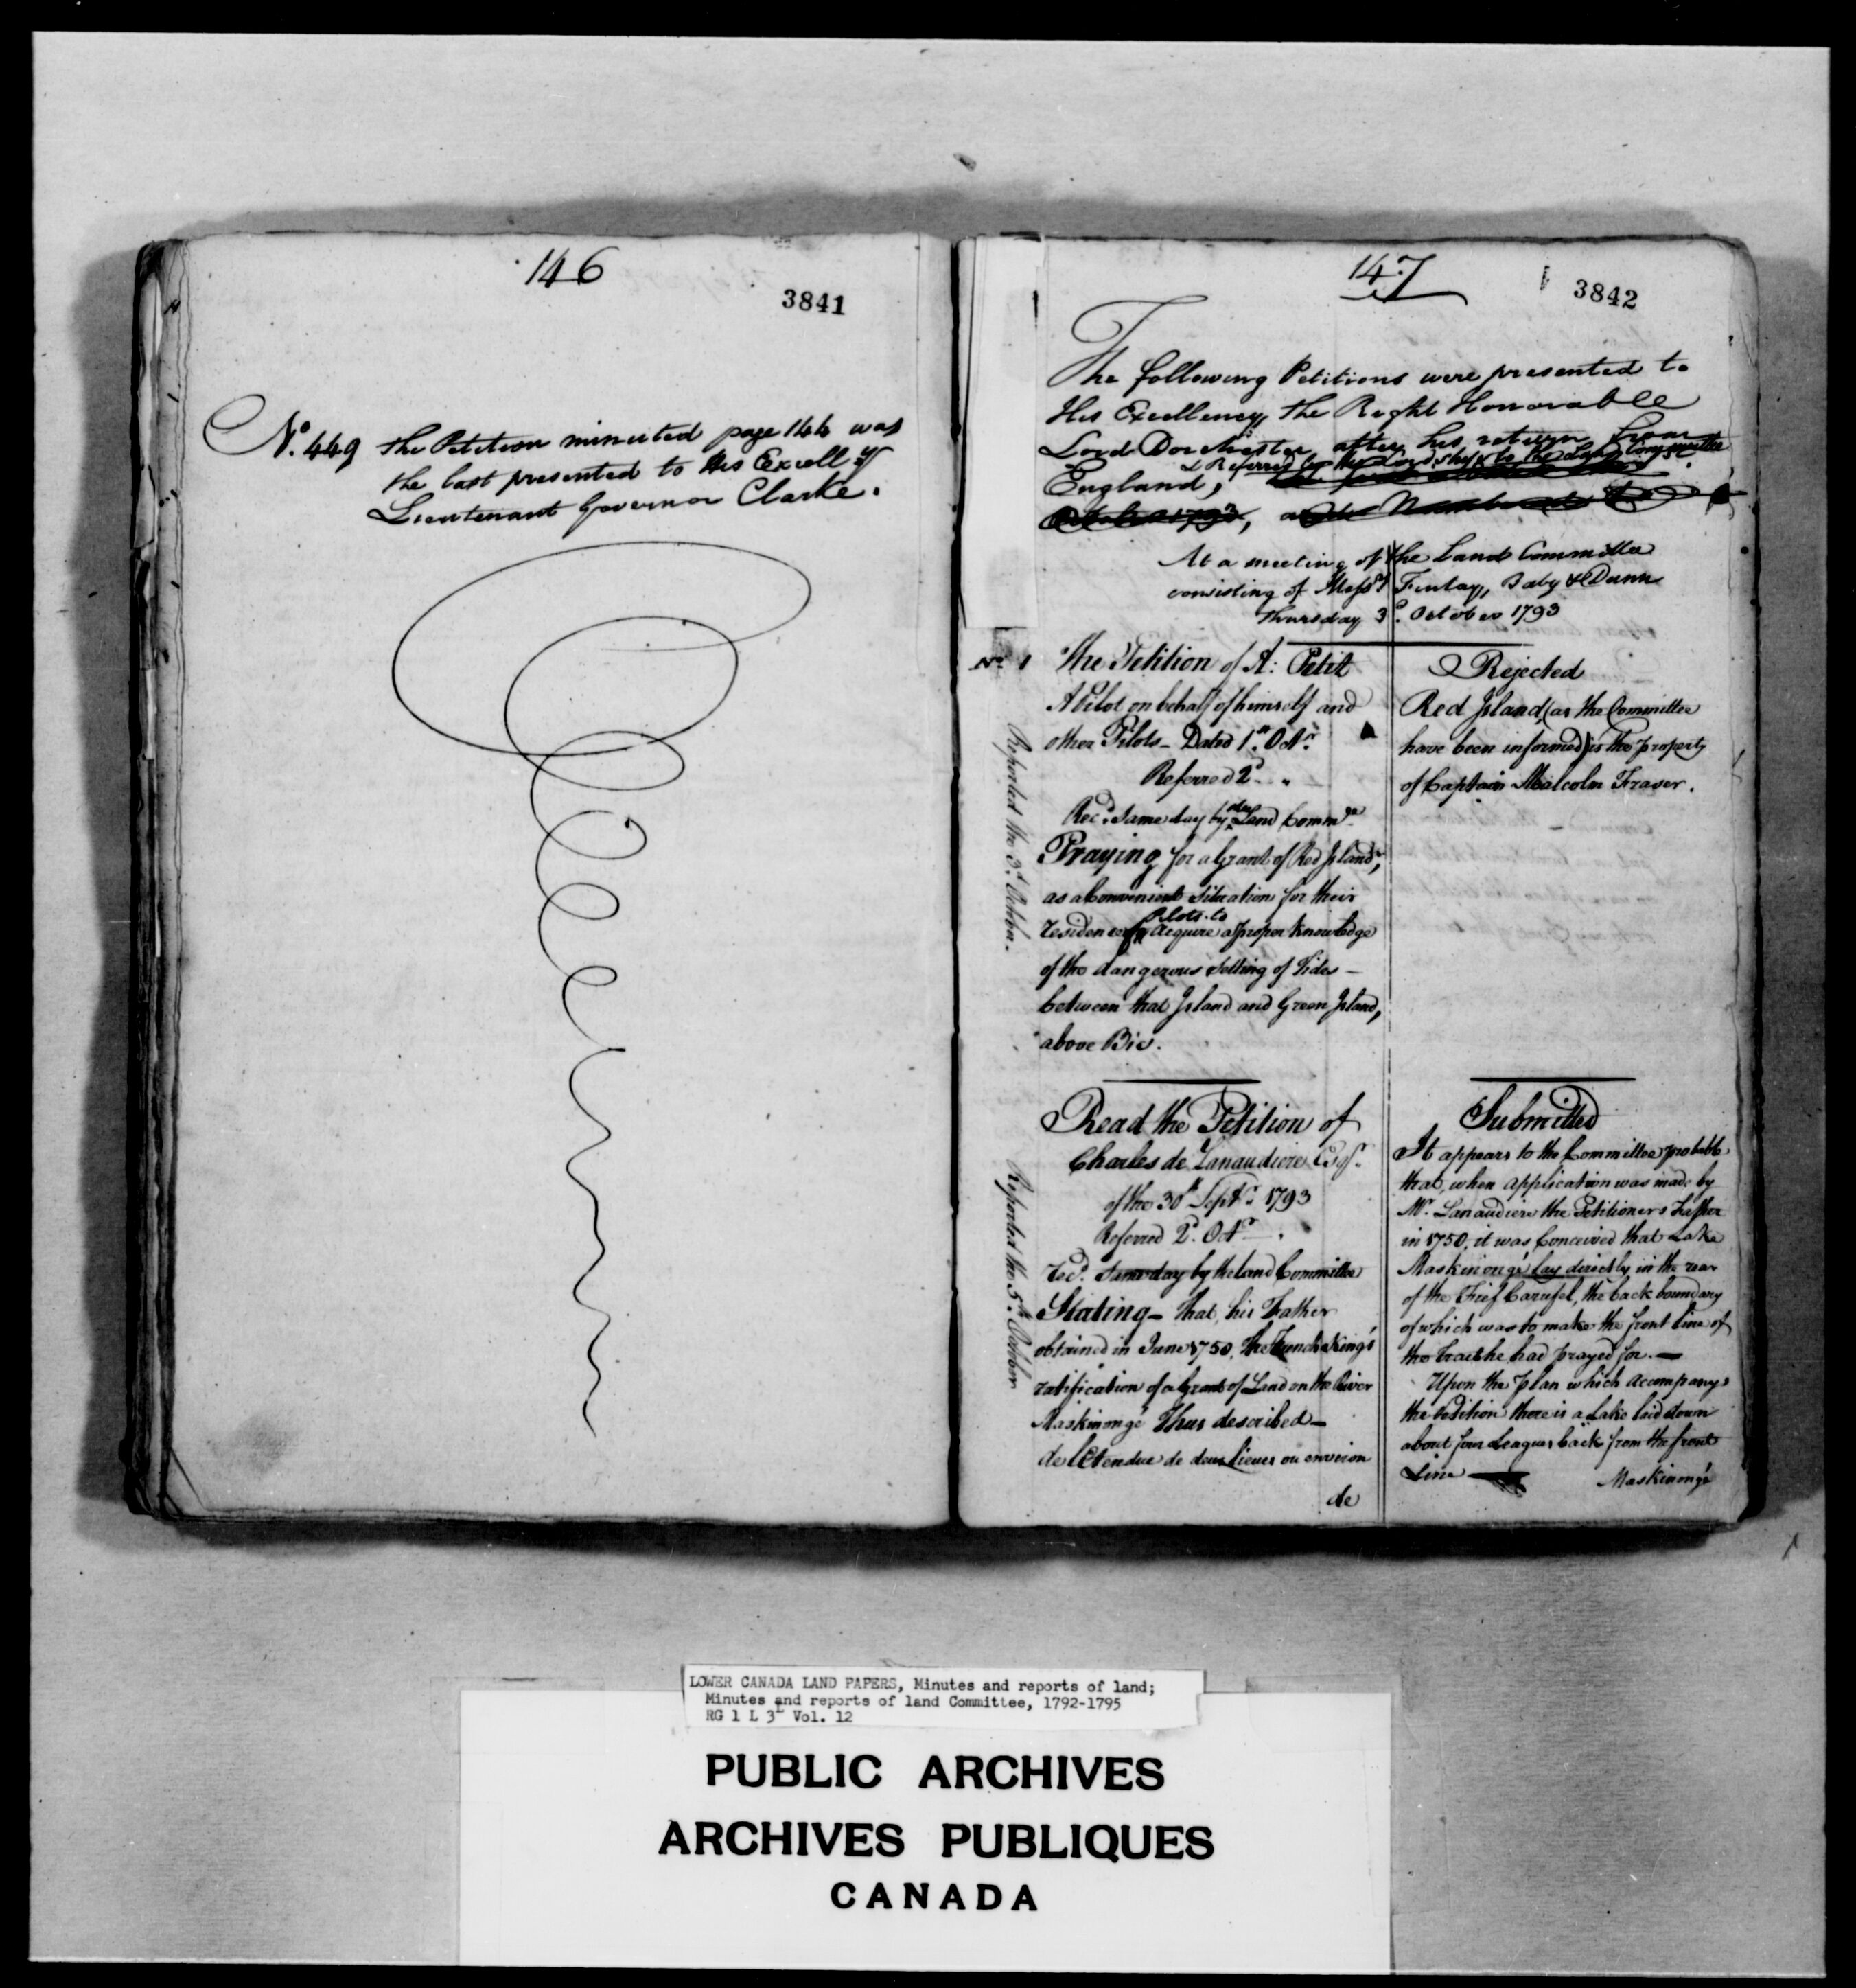 146
3841
No. 449 The Petition minuted page 144 was
the last presented to His Excelly
Lieutenant Governor Clarke.
147
3842
The following Petitions were presented to
His Excellency, the Right Honorable
Lord Dorchester, after his return from
& Referred by His Lordship to the Land Committee
England,
October 1793,
At a meeting of the Land Committee
consisting of Messrs Finlay, Baby & Dunn
Thursday 3d. October 1793
No. 1 The Petition of A: Petit
A Pilot on behalf of himself and
other Pilots - Dated 1st. Octr.
Referred 2d. "
Recd. Same day by the Land Commee
Praying for a Grant of Red Island,
as a Convenient Situation for their
Pilots to
residence acquire a proper knowledge
of the dangerous Setting of Tides —
between that Island and Green Island,
above Bic.
Reported the 3d. October.
Rejected
Red Island, (as the Committee
have been informed) is the property
of Captain Malcolm Fraser.
Read the Petition of
Charles de Lanaudiere Esqr.
of the 30th Septr. 1793
Referred 2d. Octr.
Recd. Same day by the land Committee
Stating - that his Father
obtained in June 1750, the French King's
ratification of a Grant of Land on the River
Maskinongé Thus described —
de l'Etendue de deux lieues ou environ
de
Reported the 5th October
Submitted
It appears to the Committee probable
that, when application was made by
Mr. Lanaudiere the Petitioners Father
in 1750, it was Conceived that Lake
Maskinongé lay directly in the rear
of the Fief Carufel, the back boundary
of which was to make the front line of
the tract he had prayed for. —
Upon the plan which accompanys
the Petition there is a Lake laid down
about four Leagues back from the front
Line Maskinongé
LOWER CANADA LAND PAPERS, Minutes and reports of land;
Minutes and reports of land Committee, 1792-1795
RG 1 L 3L Vol. 12
PUBLIC ARCHIVES
ARCHIVES PUBLIQUES
CANADA